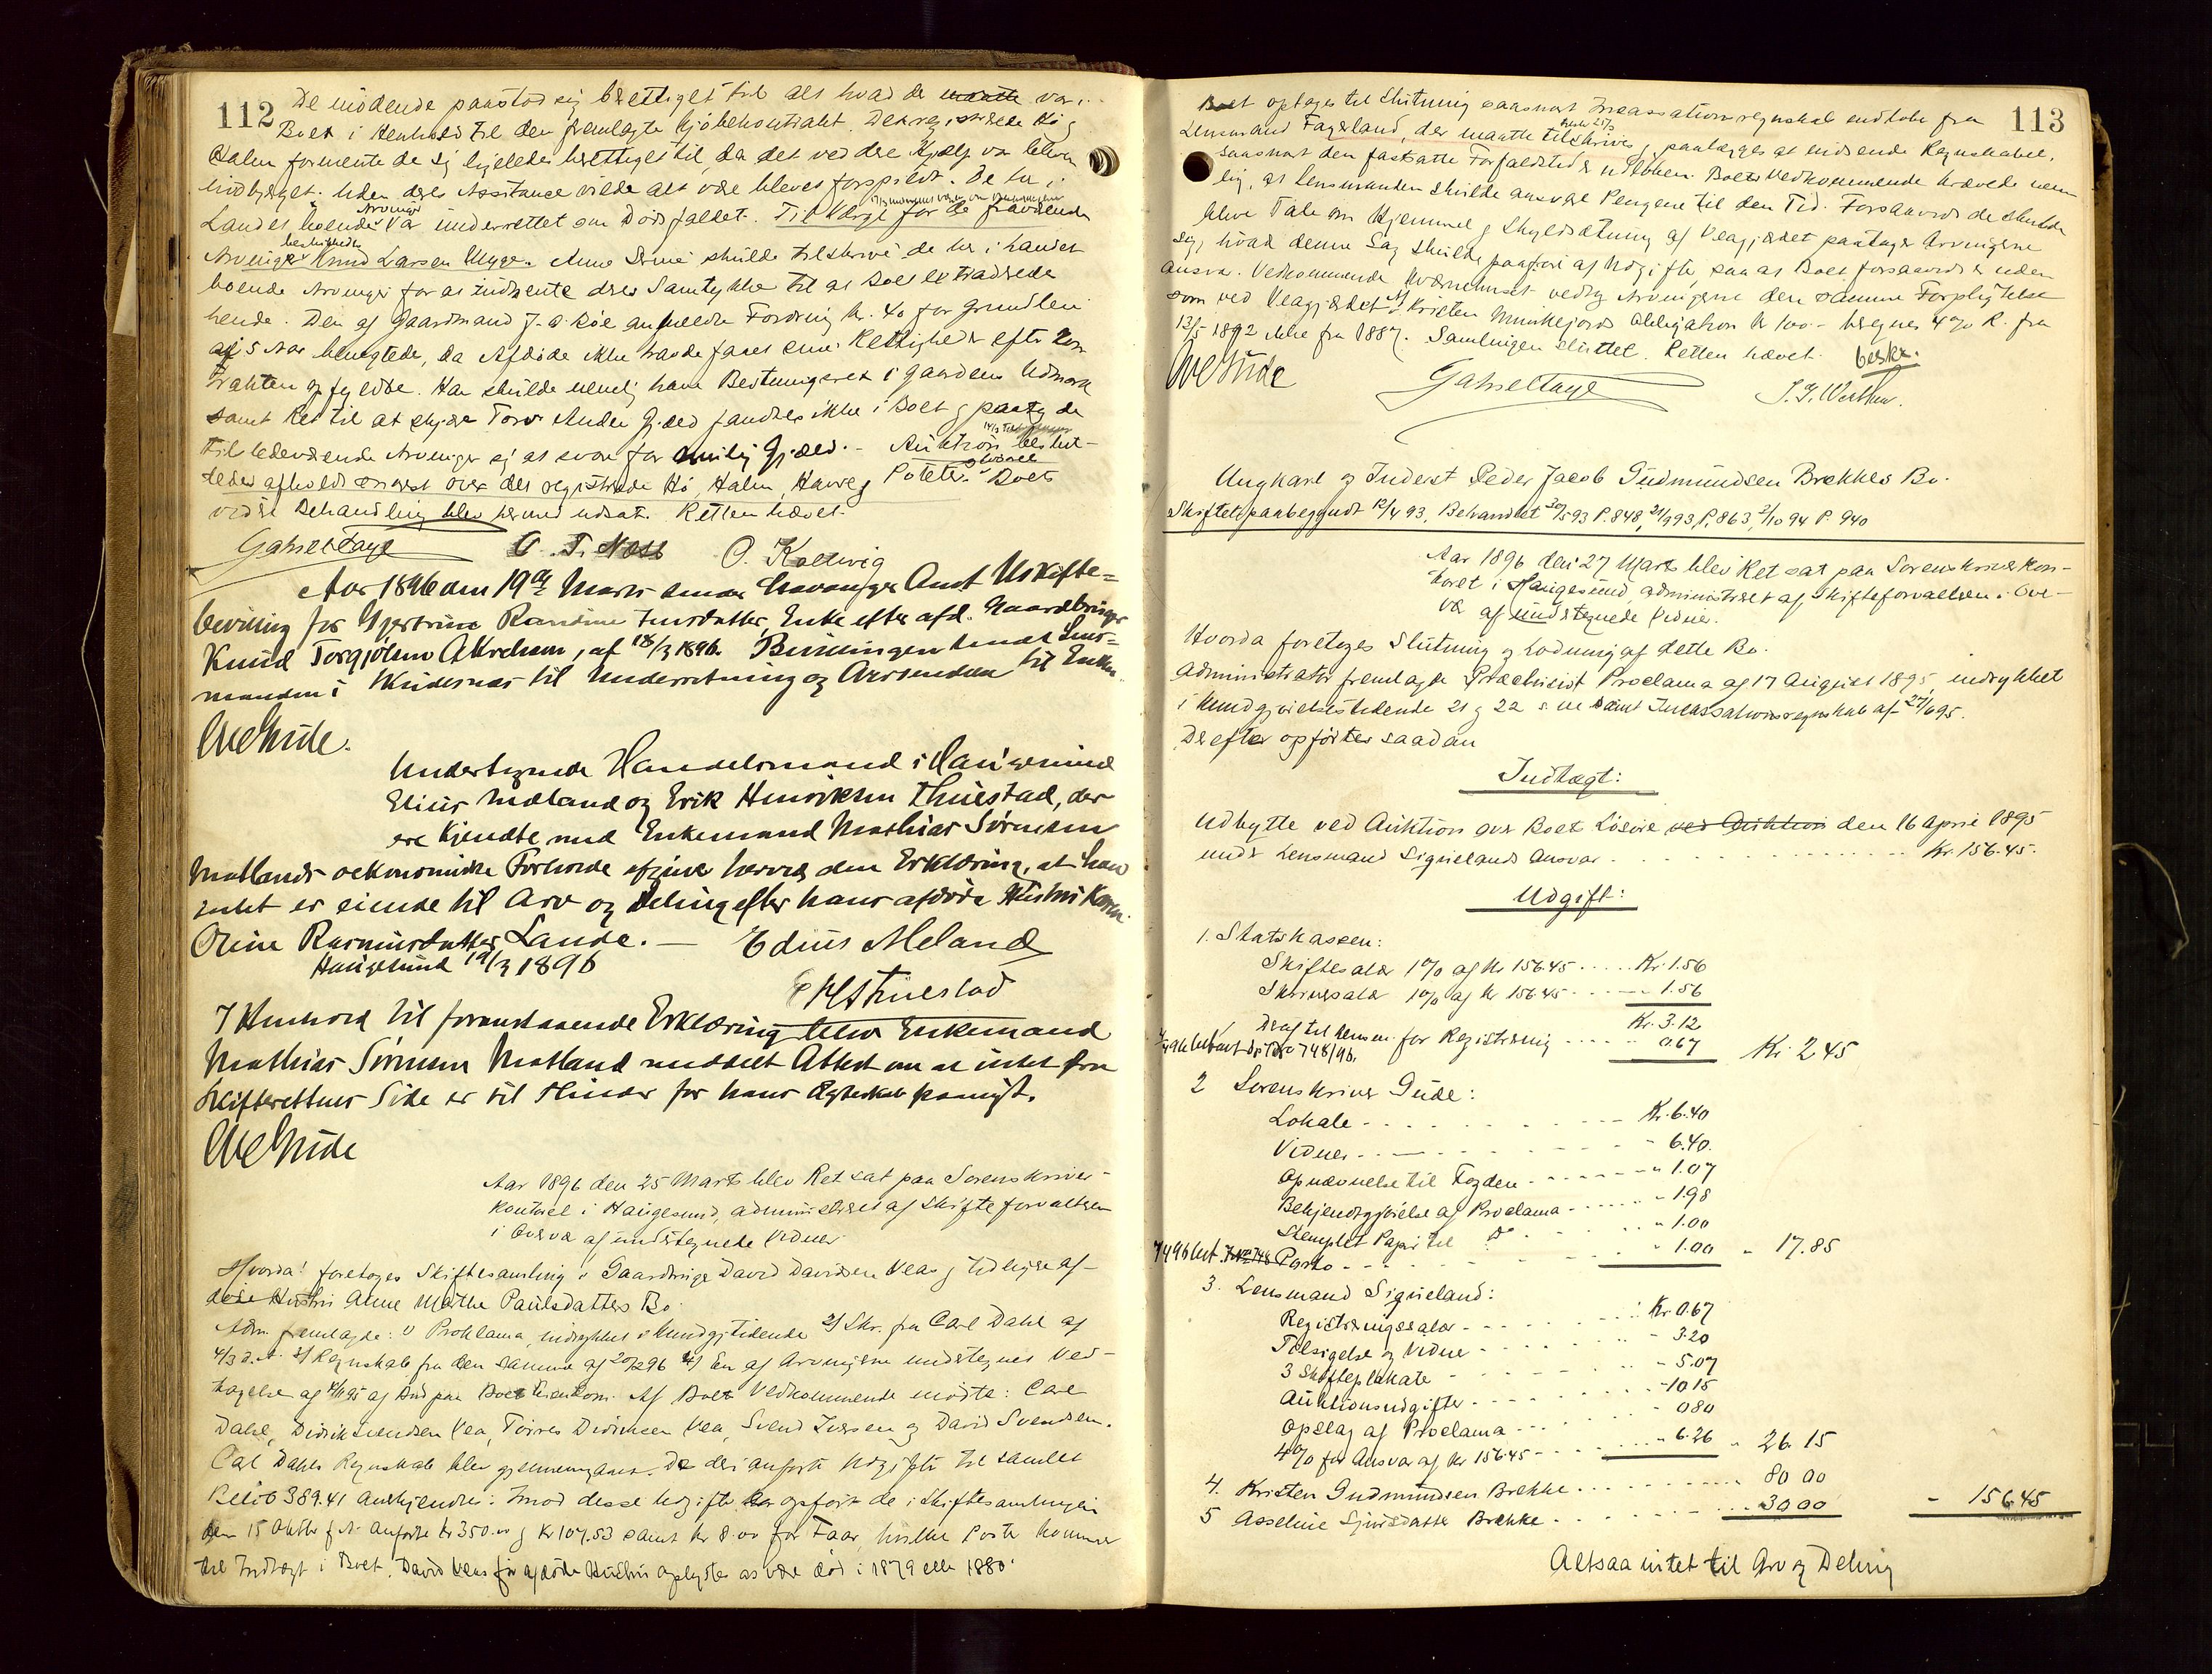 112
De mødende paastod sig berettiget til alt hvad de maatte var i
Boet i Henhold til den fremlagte Kjøbekontrakt. Det registrerede Hø og
Halm formente de sig ligeledes berettiget til, da det ved deres Hjælp var bleven
indbjerget. Uden deres Assistance vilde alt være blevet forspildt. De her i
Landet boende Arvinger var underrettet om Dødsfaldet. Til Værge for de fraværende
Arvinger beskikkedes Knud Larsen Mygge. skulde tilskrive de her i Landet
boende Arvinger for at indhente deres Samtykke til at Boet extraderedes
hende. Den af Gaardmand J. A. Bøe anmeldte Fordring Kr. 40 for Grundleie
af 5 Aar benegtedes, da Afdøde ikke havde faaet sine Rettigheder efter Kon
trakten opfyldte. Han skulde nemlig have Beitningsret i Gaardens Udmark
samt Ret til at skjære Torv. Anden Gjæld fandtes ikke i Boet og paatog de
tilstedeværende Arvinger sig at svare for mulig Gjæld. - Auktion beslut-
tedes afholdt snarest over det registrerede Hø, Halm, Havre og Poteter. Boets
videre Behandling blev hermed udsat. Retten hævet.
Gabriel Tage O. T. Næss O. Kallevig
Aar 1896 den 19de Marts Stavanger Amt Uskifte=
bevilling for Gjertrine Randine Larsdatter, Enke efter afd. Gaardbruger
Knud Torgjølsen Aakrehavn, af 18/3 1896. Bevillingen sendt Lens=
manden i Skudesnæs til Underretning og Aversendelse til Enken.
Ove Gude.
Undertegnede Handelsmænd i Haugesund
Elius Mæland og Erik Henriksen Thuestad, der
ere kjendte med Enkemand Mathias Sørensen
Matlands oekonomiske Forholde afgive herved den Erklæring, at han
intet er eiende til Arv og Deling efter hans afdøde Hustru Karen
Oline Rasmusdatter Lande. —
Edius Meland
Haugesund 19/3 1896
E H Thuestad
I Henhold til foranstaaende Erklæring blev Enkemand
Mathias Sørensen Matland meddelt Attest om at intet fra
Skifterettens Side er til Hinder for hans Ægteskab paanyt.
Ove Gude
Aar 1896 den 25 Marts blev Ret sat paa Sorenskriver-
kontoret i Haugesund, administreret af Skifteforvalteren
i Overvær af undertegnede Vidner
Hvorda! foretoges Skiftesamling i Gaardbruger David Davidsen Veas og tidligere af-
døde Hustru Anne Marthe Paulsdatters Bo.
Adm. fremlagde: 1) Proklama, indrykket i Kundgj.tidende 2) Skr. fra Carl Dahl af
4/3 d. A. 3) Regnskab fra den samme af 20/2 96 4) En af Arvingerne undertegnet Ved-
tagelse af 4/11 95 af Bud paa Boets Eiendom. Af Boets Vedkommende mødte: Carl
Dahl, Didrik Svendsen Vea, Torres Didriksen Vea, Svend Iversen og David Svendsen.
Carl Dahls Regnskab blev gjennemgaaet. De deri anførte Udgifter til samlet
Beløb 389.41 anerkjendtes. Imod disse Udgifter bør opføres de i Skiftesamlingen
den 15 Oktbr f. A. anførte Kr 350.00 og Kr 107.53 samt Kr 8.00 for Faar, hvilke Poster kommer
til Indtægt i Boet. David Veas før afdøde Hustru oplystes at være død i 1879 eller 1880.
113
Boet optages til Slutning saasnart Incassationsregnskab indløber fra
Lensmand Fagerland, der maatte tilskrives og paalægges at indsende Regnskabet,
saasnart den fastsatte Forfaldstid er udløben. Boets Vedkommende krævede nem-
lig, at Lensmanden skulde ansvare Pengene til den Tid. Forsaavidt de skulde
blive Tale om Hjemmel og Skyldsætning af Veagjædet paatager Arvingerne
sig, hvad denne Sag skulde paaføre af Udgifter, saa at Boet forsaavidt er uden
Ansvar. Vedkommende Kværnehuset vedtog Arvingerne den samme Forpligtelse
som ved Veagjædet. Af Kristen Munkejords Obligation Kr 100.- beregnes 4% R. fra
12/5 1892 ikke fra 1887. Samlingen sluttet. Retten hævet. beskr.
Ove Gude Gabriel Tage J. J. Westbue.
Ungkarl og Inderst Peder Jacob Gudmundsen Brekkes Bo.
Skiftet paabegyndt 12/4 93, Behandlet 20/5 93 P. 848, 21/9 93, P. 863, 2/10 94 P. 940
Aar 1896 den 27 Marts blev Ret sat paa Sorenskriverkon-
toret i Haugesund, administreret af Skifteforvalteren i Over-
vær af undertegnede Vidner.
Hvorda foretoges Slutning og Lodning af dette Bo.
Administrator fremlagde Præclusivt Proclama af 17 August 1895, indrykket
i Kundgjørelsestidende 21 og 22 s. m. samt Incassationsregnskab af 27/6 95.
Derefter opførtes saadan
Indtægt:
Udbytte ved Auktion over Boets Løsøre ved Auktion den 16 April 1895
under Lensmand Siquelands Ansvar . . . . . Kr. 156.45.
Udgift:
1. Statskassen:
Skiftesalær 1% af Kr 156.45 . . . . . Kr. 1.56
Skriversalær 1% af Kr 156.45 . . . . — 1.56
Kr. 3.12
Deraf til Lensm. for Registrering . . . . . 0.67 Kr. 2.45
2 Sorenskriver Gude:
Lokale . . . . . Kr. 6.40
Vidner . . . . . - 6.40.
Opnævnelse til Fogden . . . . . " 1.07
Bekjendtgjørelse af Proclama . . . . . - 1.98
Stemplet Papir til Do . . . . . " 1.00
Porto . . . . . " 1.00 " 17.85
3. Lensmand Siqueland:
Registreringssalær . . . . . Kr. 0.67
Tilsigelse og Vidne . . . . . - 3.20
3 Skifteplakate . . . . . - 5.07
Auktionsudgifter . . . . . - 10 15
Opslag af Proclama . . . . . - 0 80
4% for Ansvar af Kr 156.45 . . . . . " 6.26 " 26.15
4. Kristen Gudmundsen Brekke . . . . . 80 00
5 Asseline Sjursdatter Brekke . . . . . 30 00 - 156.45
Altsaa intet til Arv og Deling